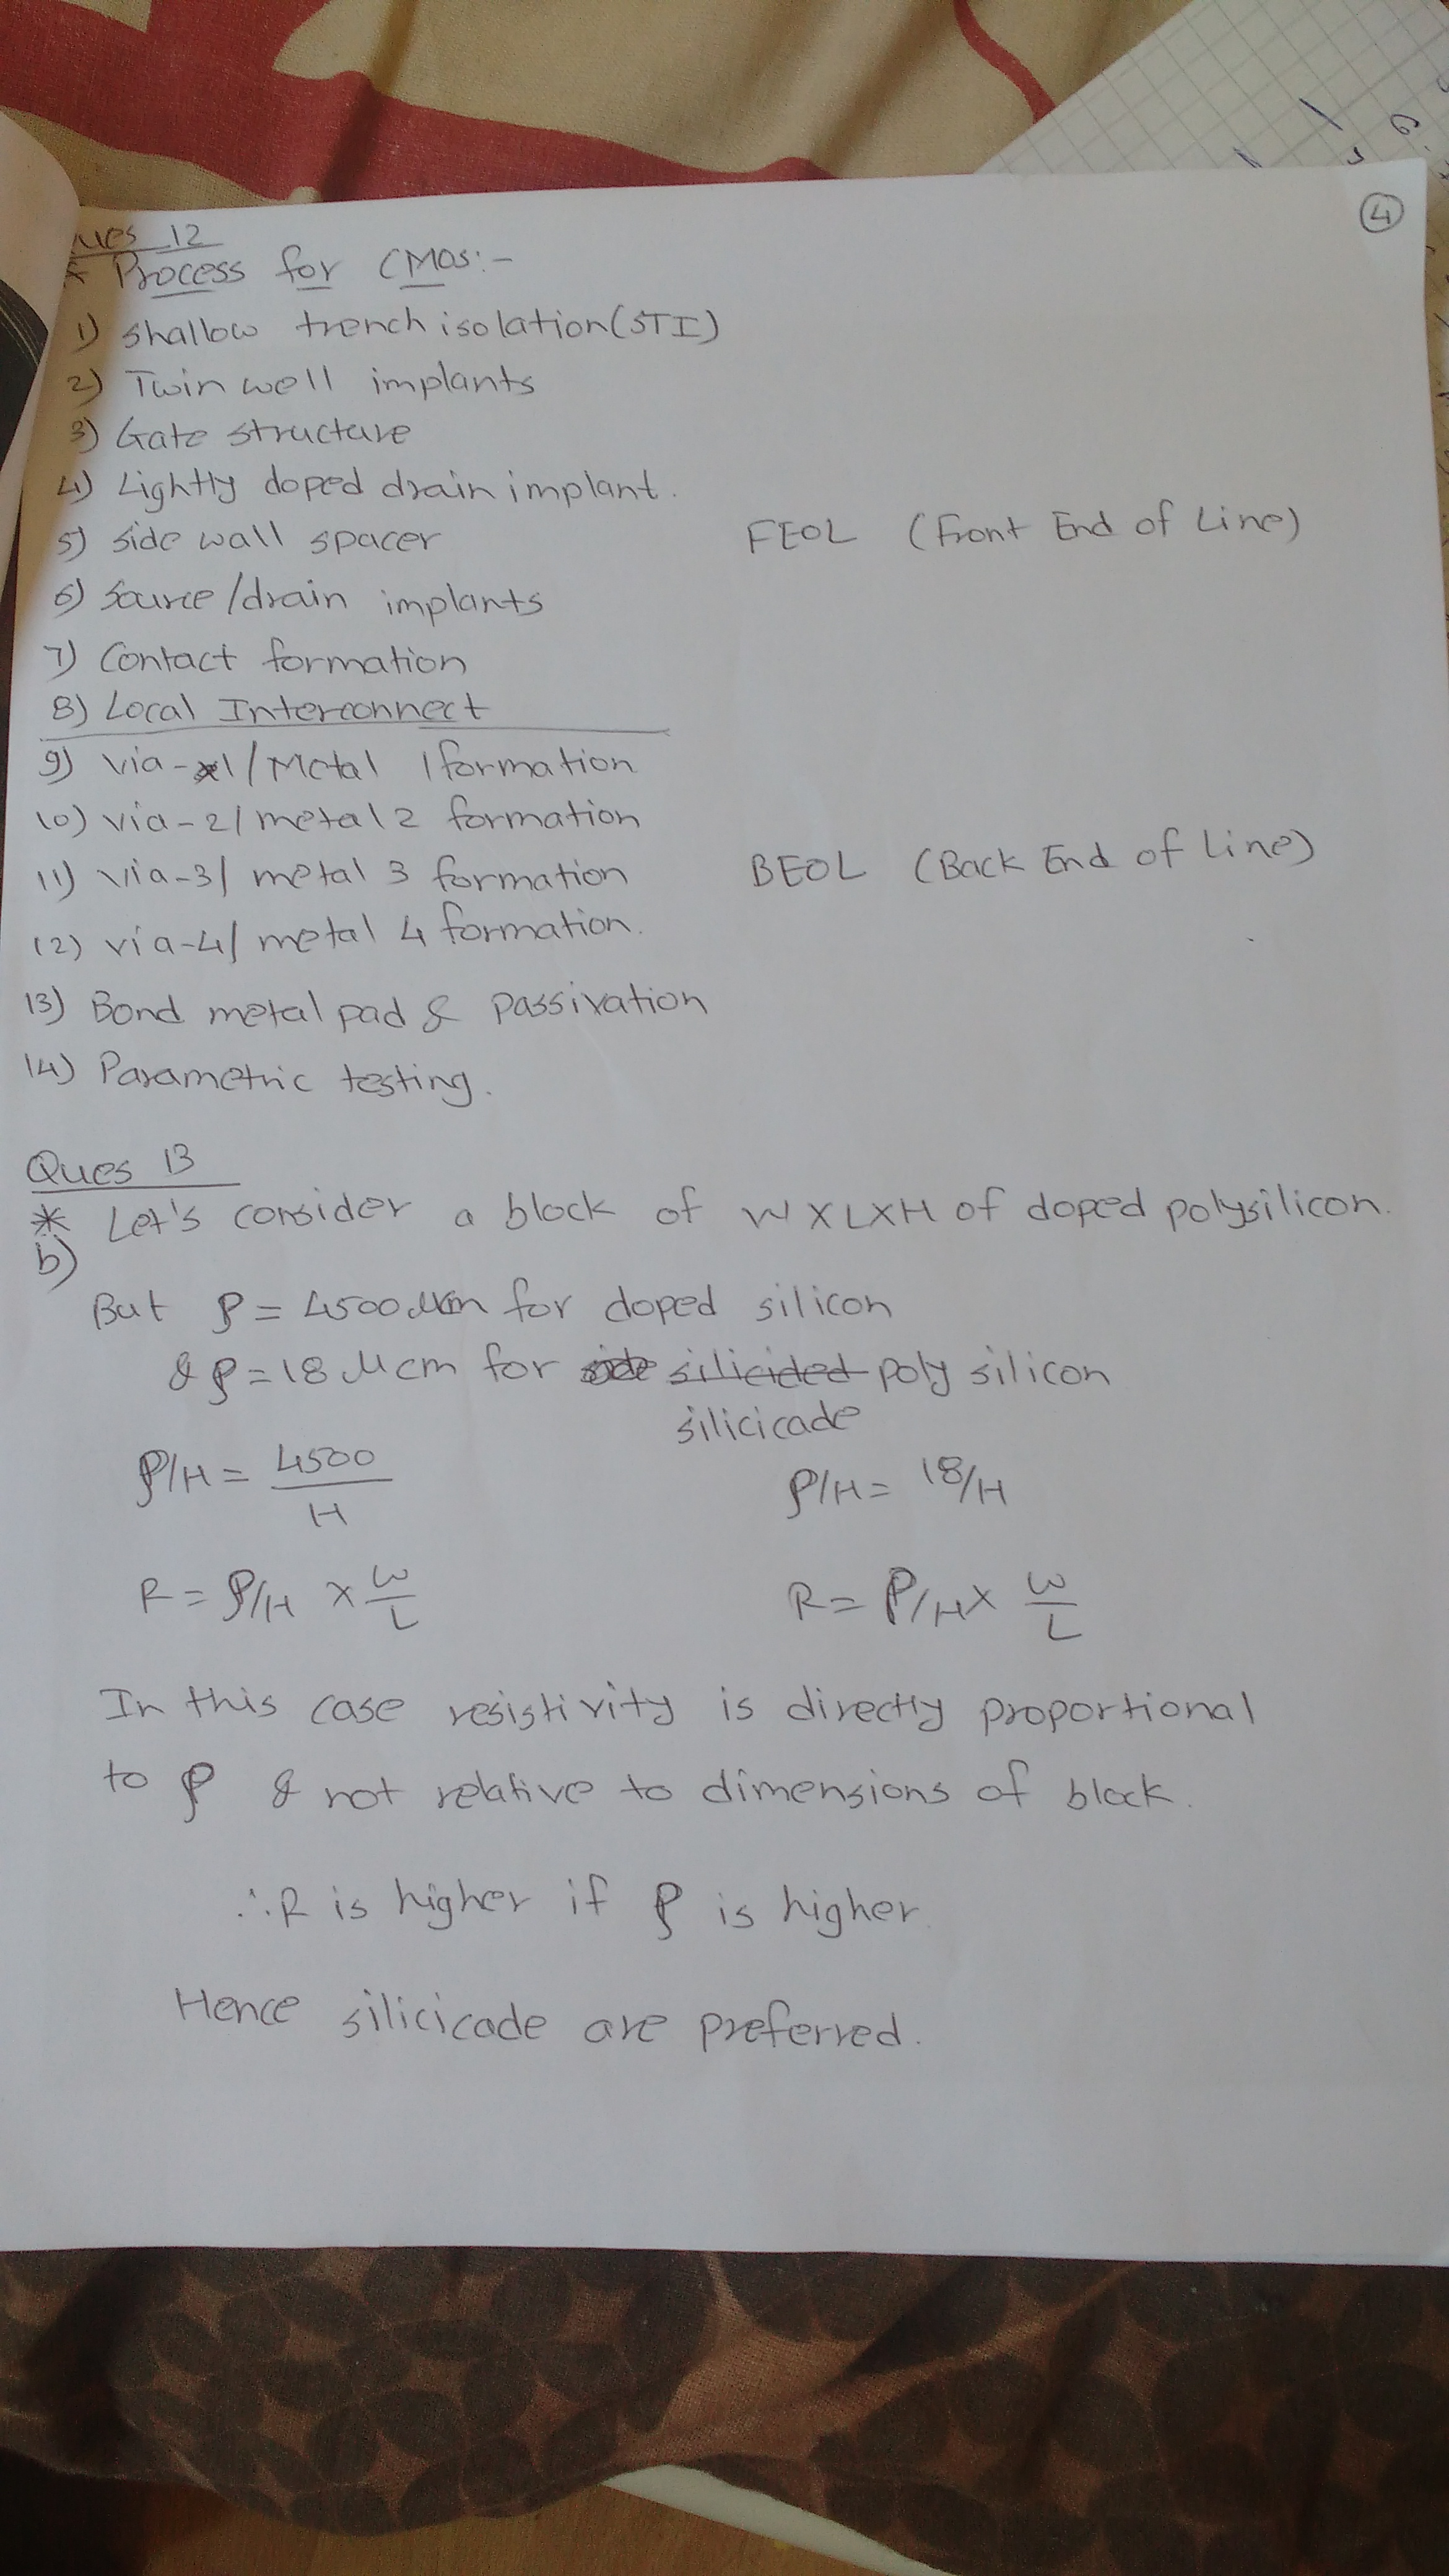 ④
ues 12
* Process for CMOS:-
1) shallow trench isolation (STI)
2) Twin well implants
3) Gate structure
4) Lightly doped drain implant.
5) side wall spacer FEOL (Front End of Line)
6) Source/drain implants
7) Contact formation
8) Local Interconnect
9) via-1/Metal 1 formation
10) via-2/metal 2 formation
11) via-3/ metal 3 formation BEOL (Back End of Line)
12) via-4/ metal 4 formation.
13) Bond metal pad & passivation
14) Parametric testing.
Ques 13
* Let's consider a block of W X L X H of doped polysilicon.
b)
But ρ = 4500 μcm for doped silicon
& ρ = 18 μcm for silicided poly silicon
silicicade
ρ/H = 4500/H ρ/H = 18/H
R = ρ/H × W/L R = ρ/H × W/L
In this case resistivity is directly proportional
to ρ & not relative to dimensions of block.
∴ R is higher if ρ is higher.
Hence silicicade are preferred.